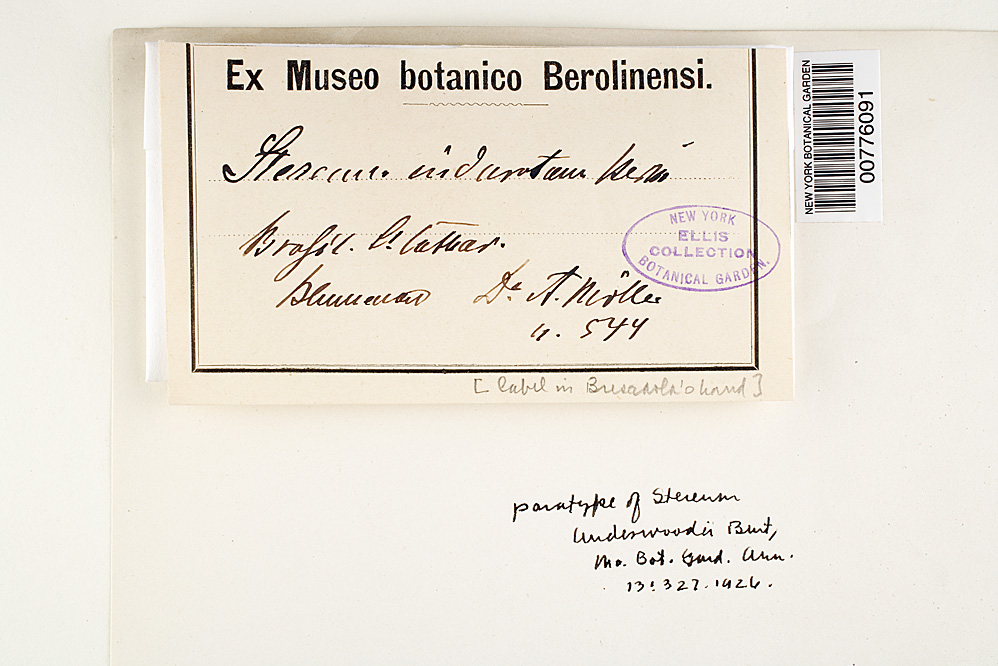 Ex Museo botanico Berolinensi.
Stereum induratum Berk
Brasil. St Cathar.
Blumenau Dr A. Möller
n. 544
NEW YORK
ELLIS
COLLECTION
BOTANICAL GARDEN.
[label in Bresadola's hand]
NEW YORK BOTANICAL GARDEN
00776091
paratype of Stereum
Underwoodii Burt,
Mo. Bot. Gard. Ann.
13:327.1926.